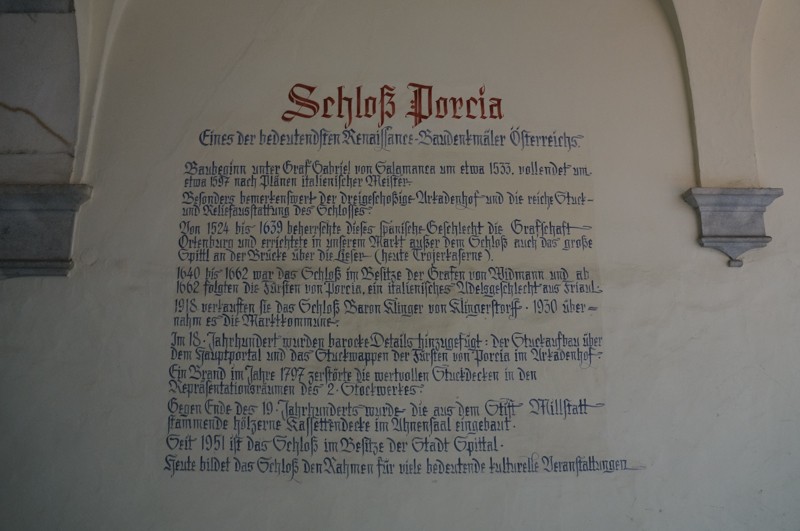 Schloß Porcia
Eines der bedeutendsten Renaissance-Baudenkmäler Österreichs.
Baubeginn unter Graf Gabriel von Salamanca um etwa 1533, vollendet um
etwa 1597 nach Plänen italienischer Meister.
Besonders bemerkenswert der dreigeschoßige Arkadenhof und die reiche Stuck-
und Reliefausstattung des Schlosses.
Von 1524 bis 1639 beherrschte dieses spanische Geschlecht die Grafschaft
Ortenburg und errichtete in unserem Markt außer dem Schloß auch das große
Spittl an der Brücke über die Lieser (heute Trojerkaserne).
1640 bis 1662 war das Schloß im Besitze der Grafen von Widmann und ab
1662 folgten die Fürsten von Porcia, ein italienisches Adelsgeschlecht aus Friaul.
1918 verkauften sie das Schloß Baron Klinger von Klingerstorff. 1930 über=
nahm es die Marktkommune.
Im 18. Jahrhundert wurden barocke Details hinzugefügt: der Stuckaufbau über
dem Hauptportal und das Stuckwappen der Fürsten von Porcia im Arkadenhof.
Ein Brand im Jahre 1797 zerstörte die wertvollen Stuckdecken in den
Repräsentationsräumen des 2. Stockwerkes.
Gegen Ende des 19. Jahrhunderts wurde die aus dem Stift Millstatt
stammende hölzerne Kassettendecke im Ahnensaal eingebaut.
Seit 1951 ist das Schloß im Besitze der Stadt Spittal.
Heute bildet das Schloß den Rahmen für viele bedeutende kulturelle Veranstaltungen.